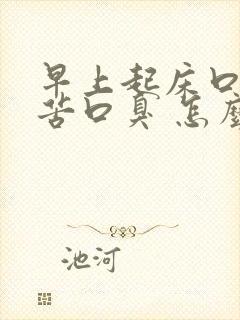 早上起床口
苦口臭怎麼
池河